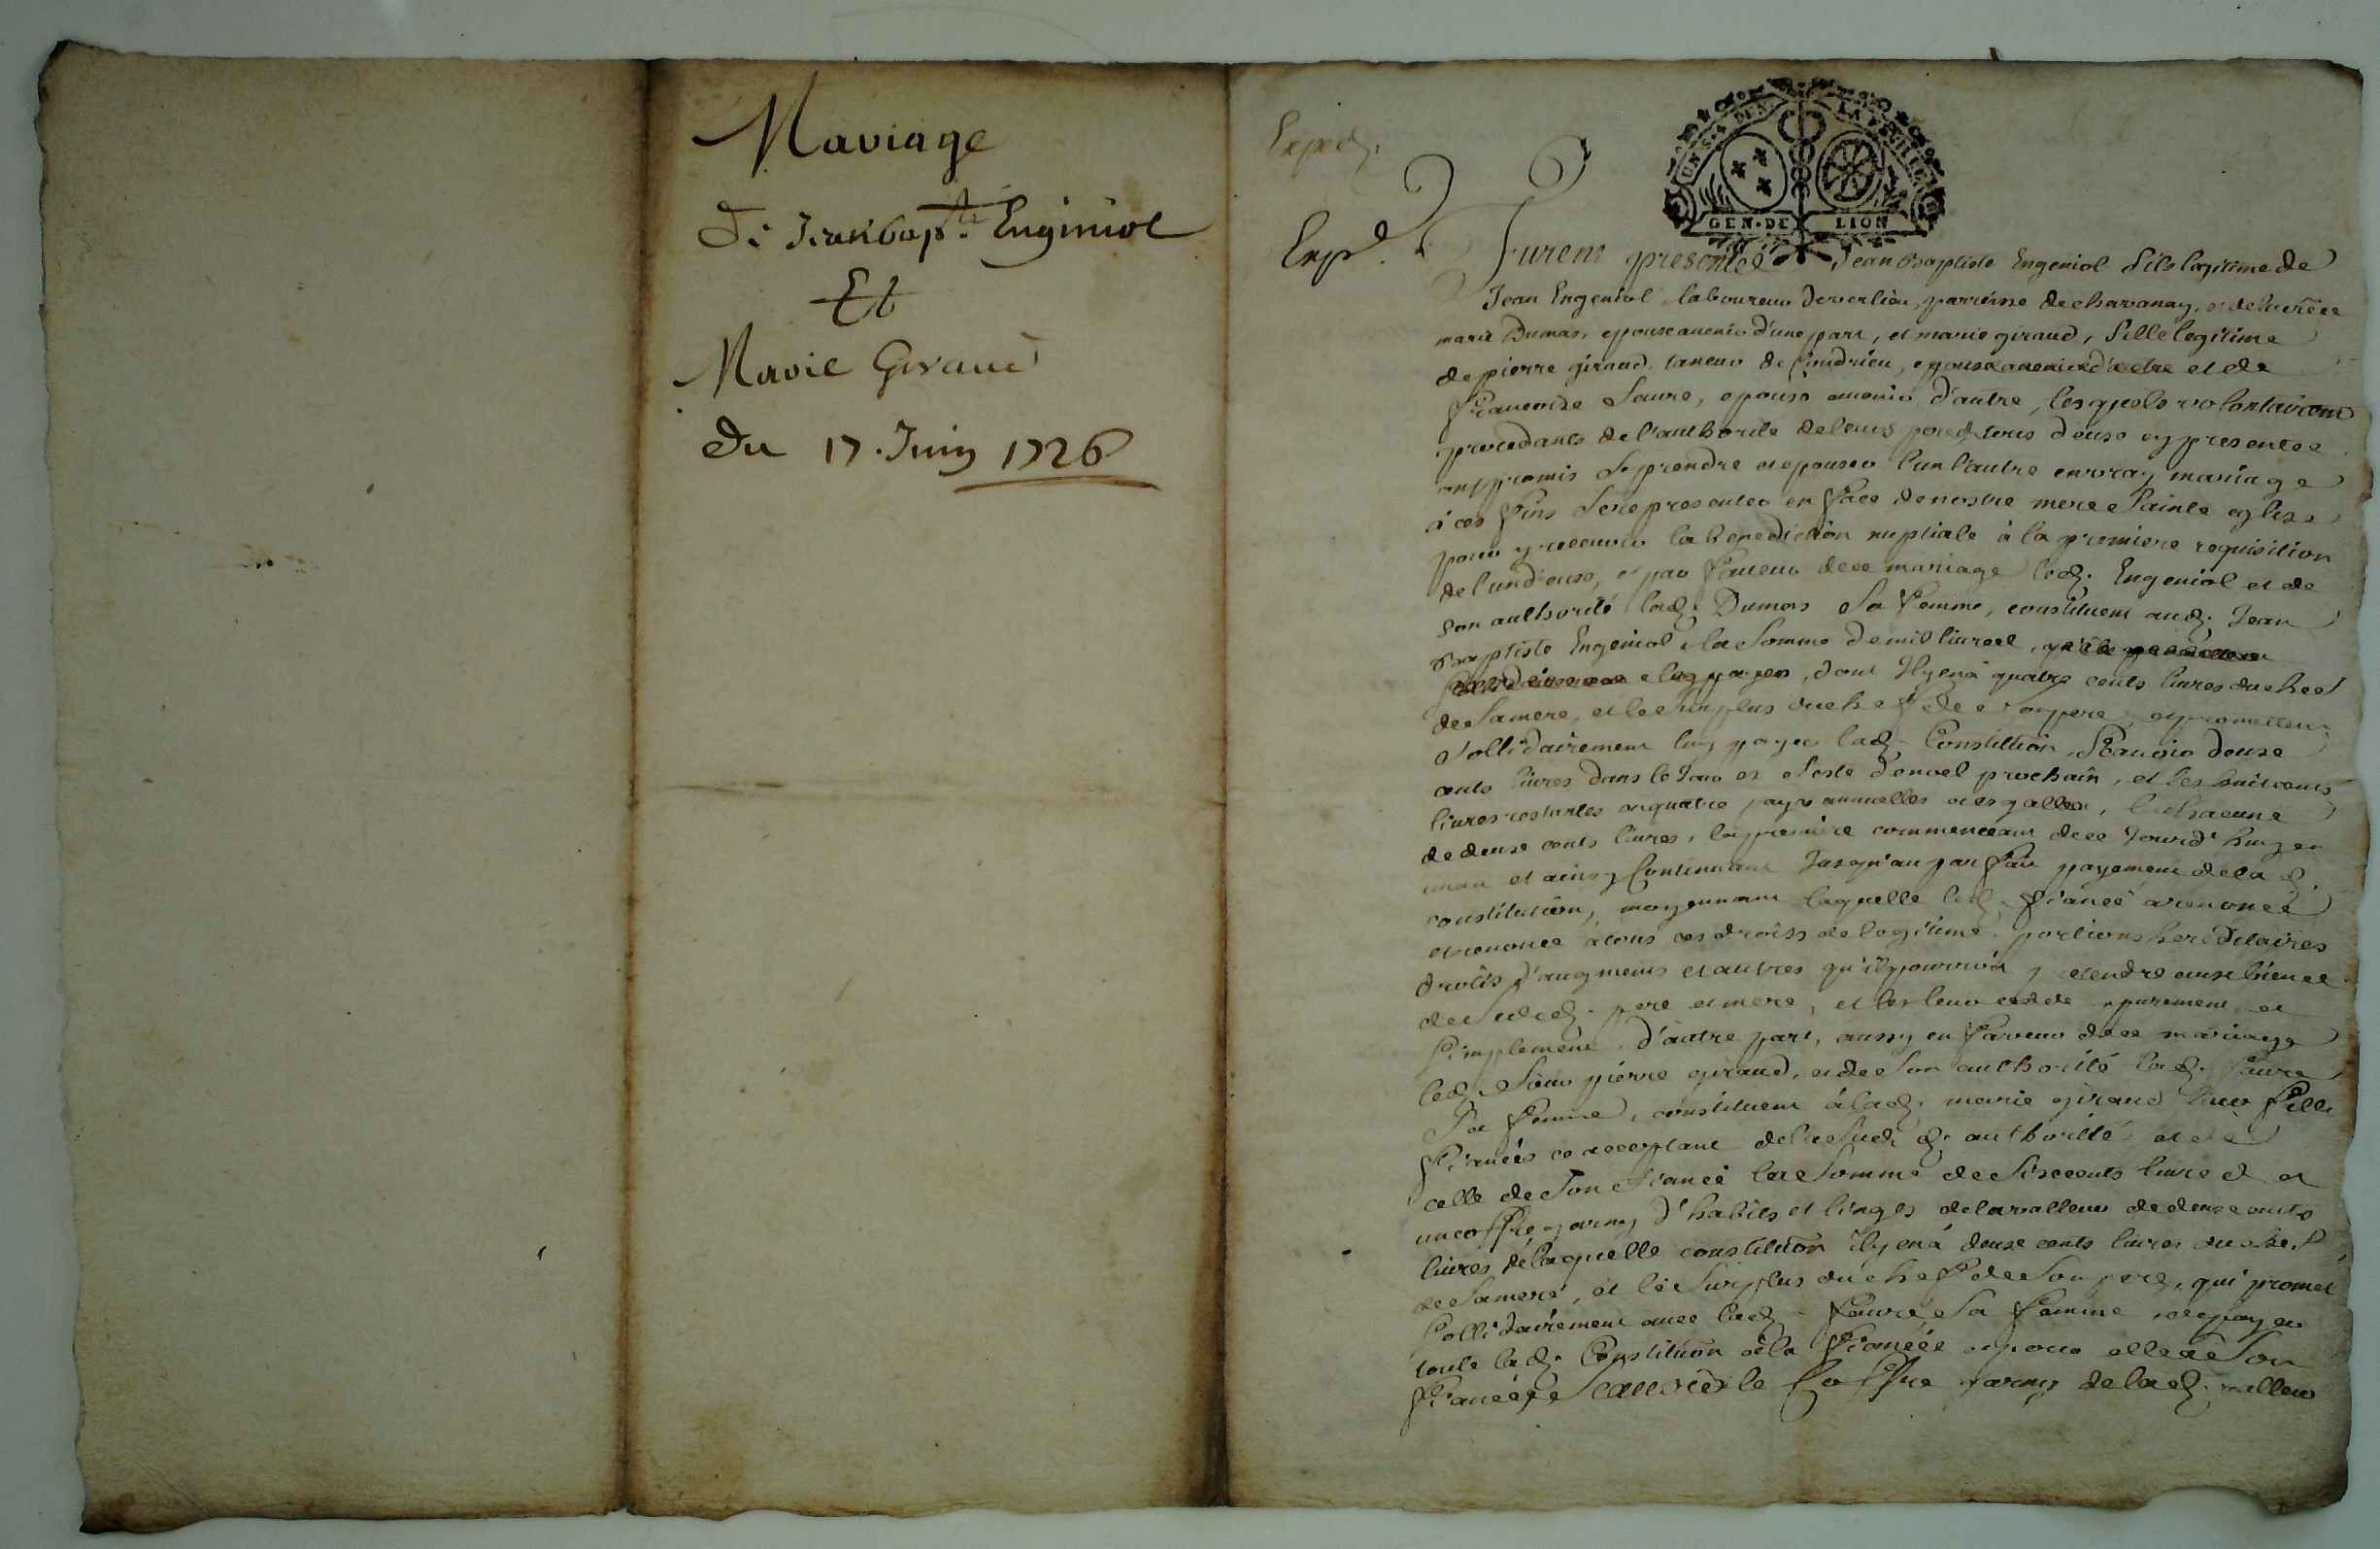 Mariage
De Jean bapte. Enginiol
Et
Marie Giraud
Du 17. Juin 1726
Exped.
Exped.
GEN. DE LION
Furent presentes Jean Baptiste Engeniol fils legitime de
Jean Engeniol laboureur de verlieu, parroisse de chavanay, et de
marie Dumas, epoux avenir d'une part, et marie giraud, fille legitime
de pierre giraud, taneur de Condrieu, et de
Francoise Faure, epouse avenir d'autre, lesquels volontairemt
procedants de l'authorité de leurs tous deux cy presentes
ont promis se prendre et epouser l'un l'autre en vray mariage
à ces fins se representer en face de nostre mere Sainte eglise
pour y recevoir la benediction nuptiale à la premiere requisition
de l'un d'eux, et par faveur de ce mariage led. Engeniol et de
son authorité lad. Dumas sa femme, constituent aud. Jean
Baptiste Engeniol la somme de mil livres,
luy payer, dont Il y en a quatre cents livres du chef
de sa mere, et le surplus du chef de son pere, et promettent
sollidairement luy payer lad. Constitution, scavoir deux
cents livres dans le Jour et feste de noel prochain, et les huit cents
livres restantes en quatre payes annuelles et esgalles, chacune
de deux cents livres, la premiere commenceant de ce Jourd'huy en
un an et ainsy Continuant Jusqu'au parfait payement de lad.
constitution, moyennant laquelle led. fiancé a renoncé
et renonce à tous ces droits de legitime, portions hereditaires
droits d'augments et autres qu'il pourroit pretendre aux biens
de sesd. pere et mere, et les leur cedde purement et
simplement, d'autre part, aussy en faveur de ce mariage
led. Sieur pierre giraud, et de son authorité lad. faure
sa femme, constituent à lad. marie giraud leur fille
fiancée ce acceptant de la susd. authorité et de
celle de son fiancé la somme de six cents livres et
un coffre garny d'habits et linges de la valleur de deux cents
livres de laquelle constitution Il y en a deux cents livres du chef
de sa mere, et le surplus du chef de son pere, qui promet
sollidairement avec lad. faure sa femme, de payer
toute lad. Constitution à la fiancée et pour elle à son
fiancé scavoir le Coffre garny de lad. valleur